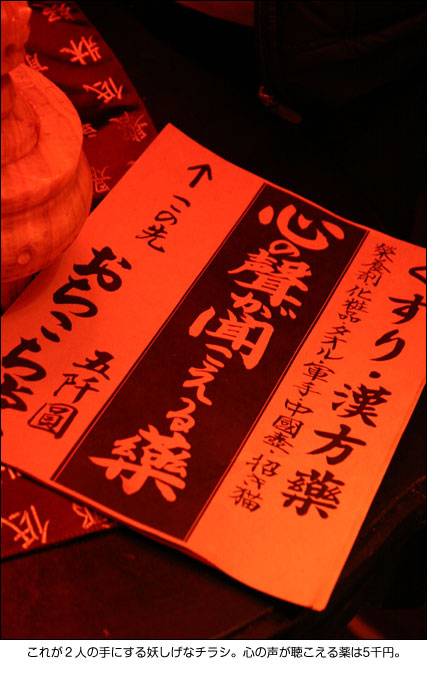 くすり・漢方藥
榮養剤・化粧品・タオル・軍手・中國壺・招き猫
心の聲が聞こえる藥
↑この先
五阡圓
おちこち
低
低
これが２人の手にする妖しげなチラシ。心の声が聴こえる薬は5千円。